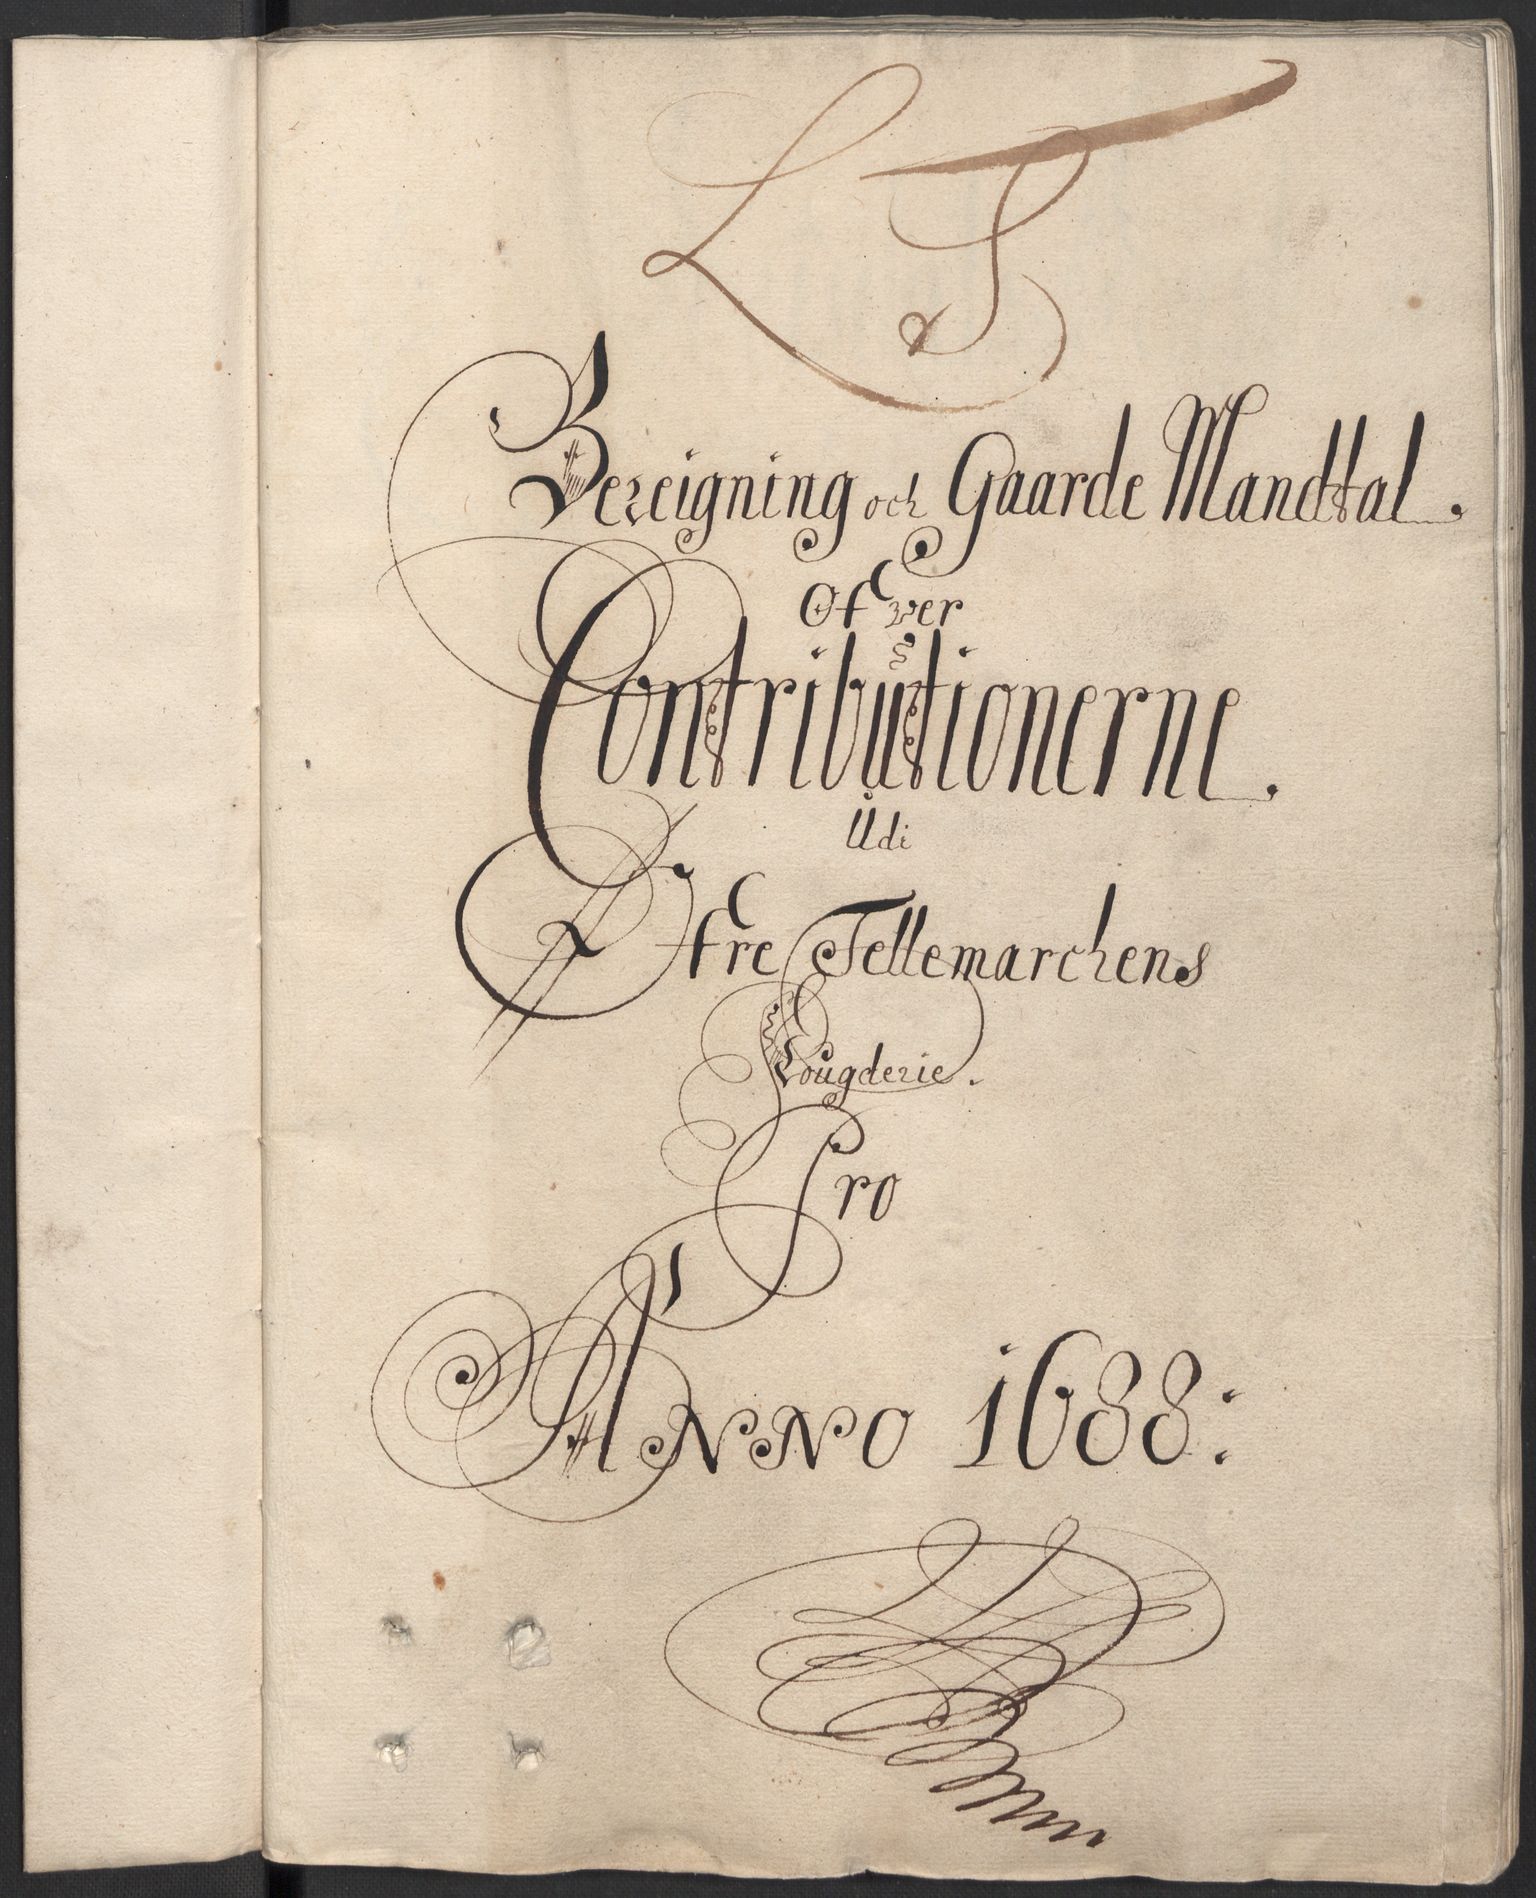 L S
Bereigning och Gaarde Mandtal.
Ofver
Contributionerne.
Udi
Øfre Tellemarchens
Fougderie.
Pro
Anno 1688: